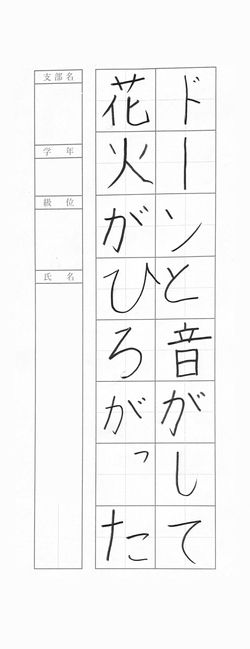 ドーンと音がして
花火がひろがった
支部名
学年
級位
氏名